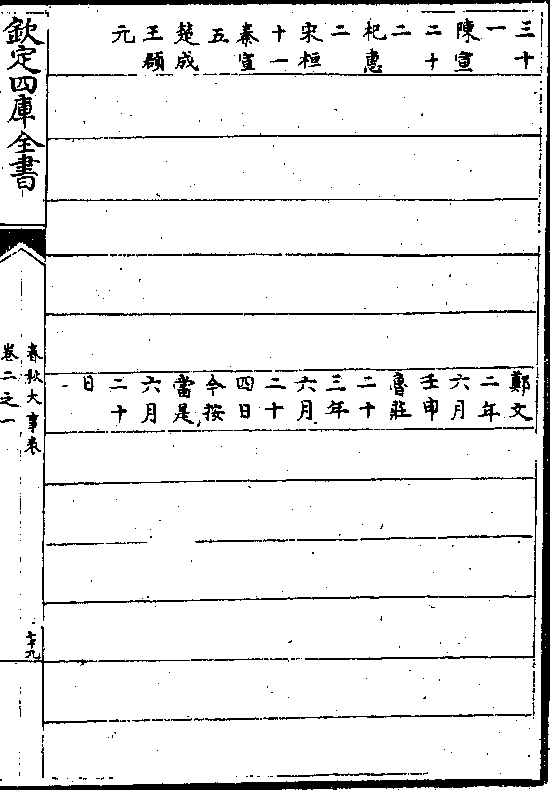 三十
一
陳宣
二十
二
杞惠
二
宋桓
十一
秦宣
五
楚成
王頵
元
鄭文
二年
六月
壬申
魯莊
二十
三年
六月
二十
四日
今按
當是
六月
二十
日
欽定四庫全書
春秋大事表
卷二之一
七十九